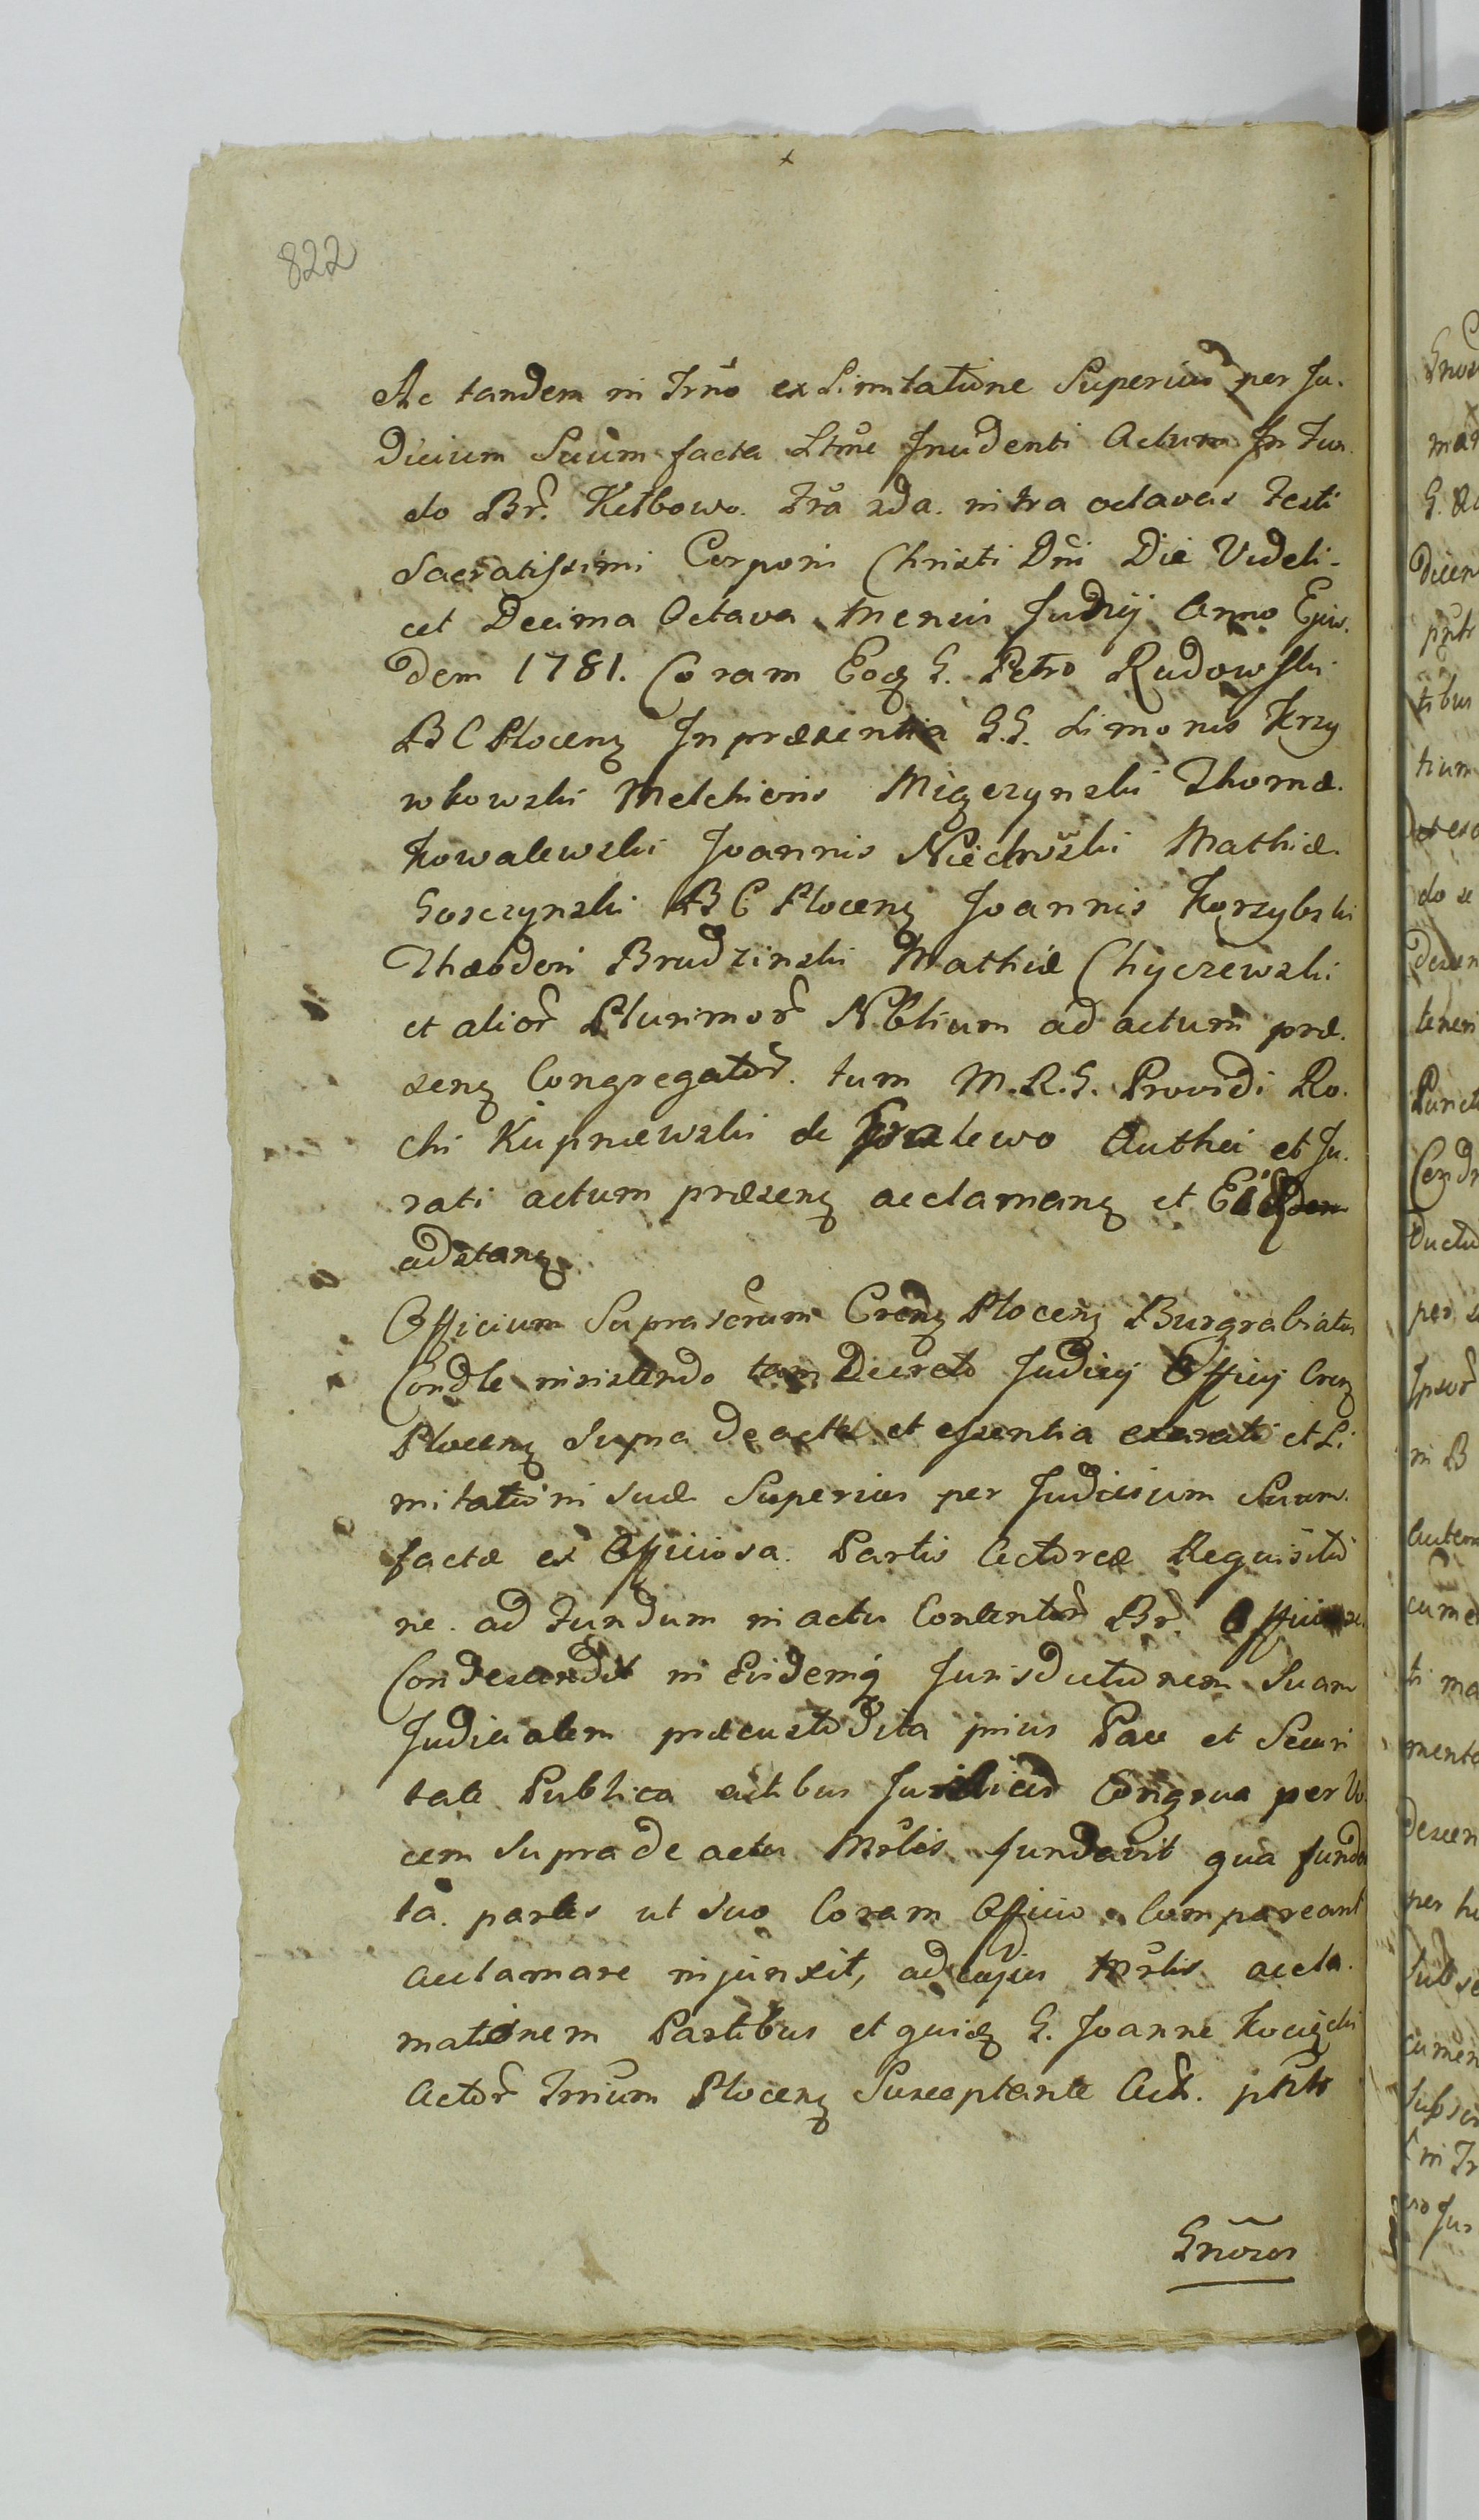 822
Ac tandem in Trno ex Limitatione Superius per Ju.
dicium Suum facta Ltme Incidenti Actum In Fun.
do Br. Kełbowo. Fra 2da. intra octavas Festi
Sacratissimi Corporis Christi Dni Die Videli-
cet Decima Octava Mensis Junij Anno Ejus.
dem 1781. Coram Eoq G. Petro Rudowski
BC Plocenq In præsentia G.G. Simonis Krzy
wkowski Melchioris Miączynski Thomæ.
Kowalewski Joannis Mathiæ.
Gosczynski BC Plocenq Joannis Korzybski
Theodori Brudzinski Mathiæ Chyczewski
et alior Plurimor Nblium ad actum præ.
senq Congregator. tum M.R.G. Providi Ro.
chi Kupniewski de Authei et Ju.
rati actum præsenq acclamanq et
adstanq.
Officium Suprascrum Crenq Plocenq Burgrabiatus
Condle insistendo tam Decreto Judicij Officij Crenq
Plocenq Supra de actu et essentia exarati et Li
mitationi suæ Superius per Judicium Suum.
factæ ex Officiosa. Partis Actoreæ Requisitio
ne. ad Fundum in actu Contentor Br. Officiose.
Condescendit in Eidemq Jurisdictionem Suam
Judicialem præcustodita prius Pace et Securi
tate Publica actibus Juridicis Congrua per Vo.
cem Supra de actu Mrlis fundavit qua funda
ta. partes ut suo Coram Officio Compareant
acclamare injunxit, ad cujus Mrlis accla.
mationem Partibus et quidq G. Joanne
Actor Trrium Plocenq Susceptante Act. pntr
Gnosos